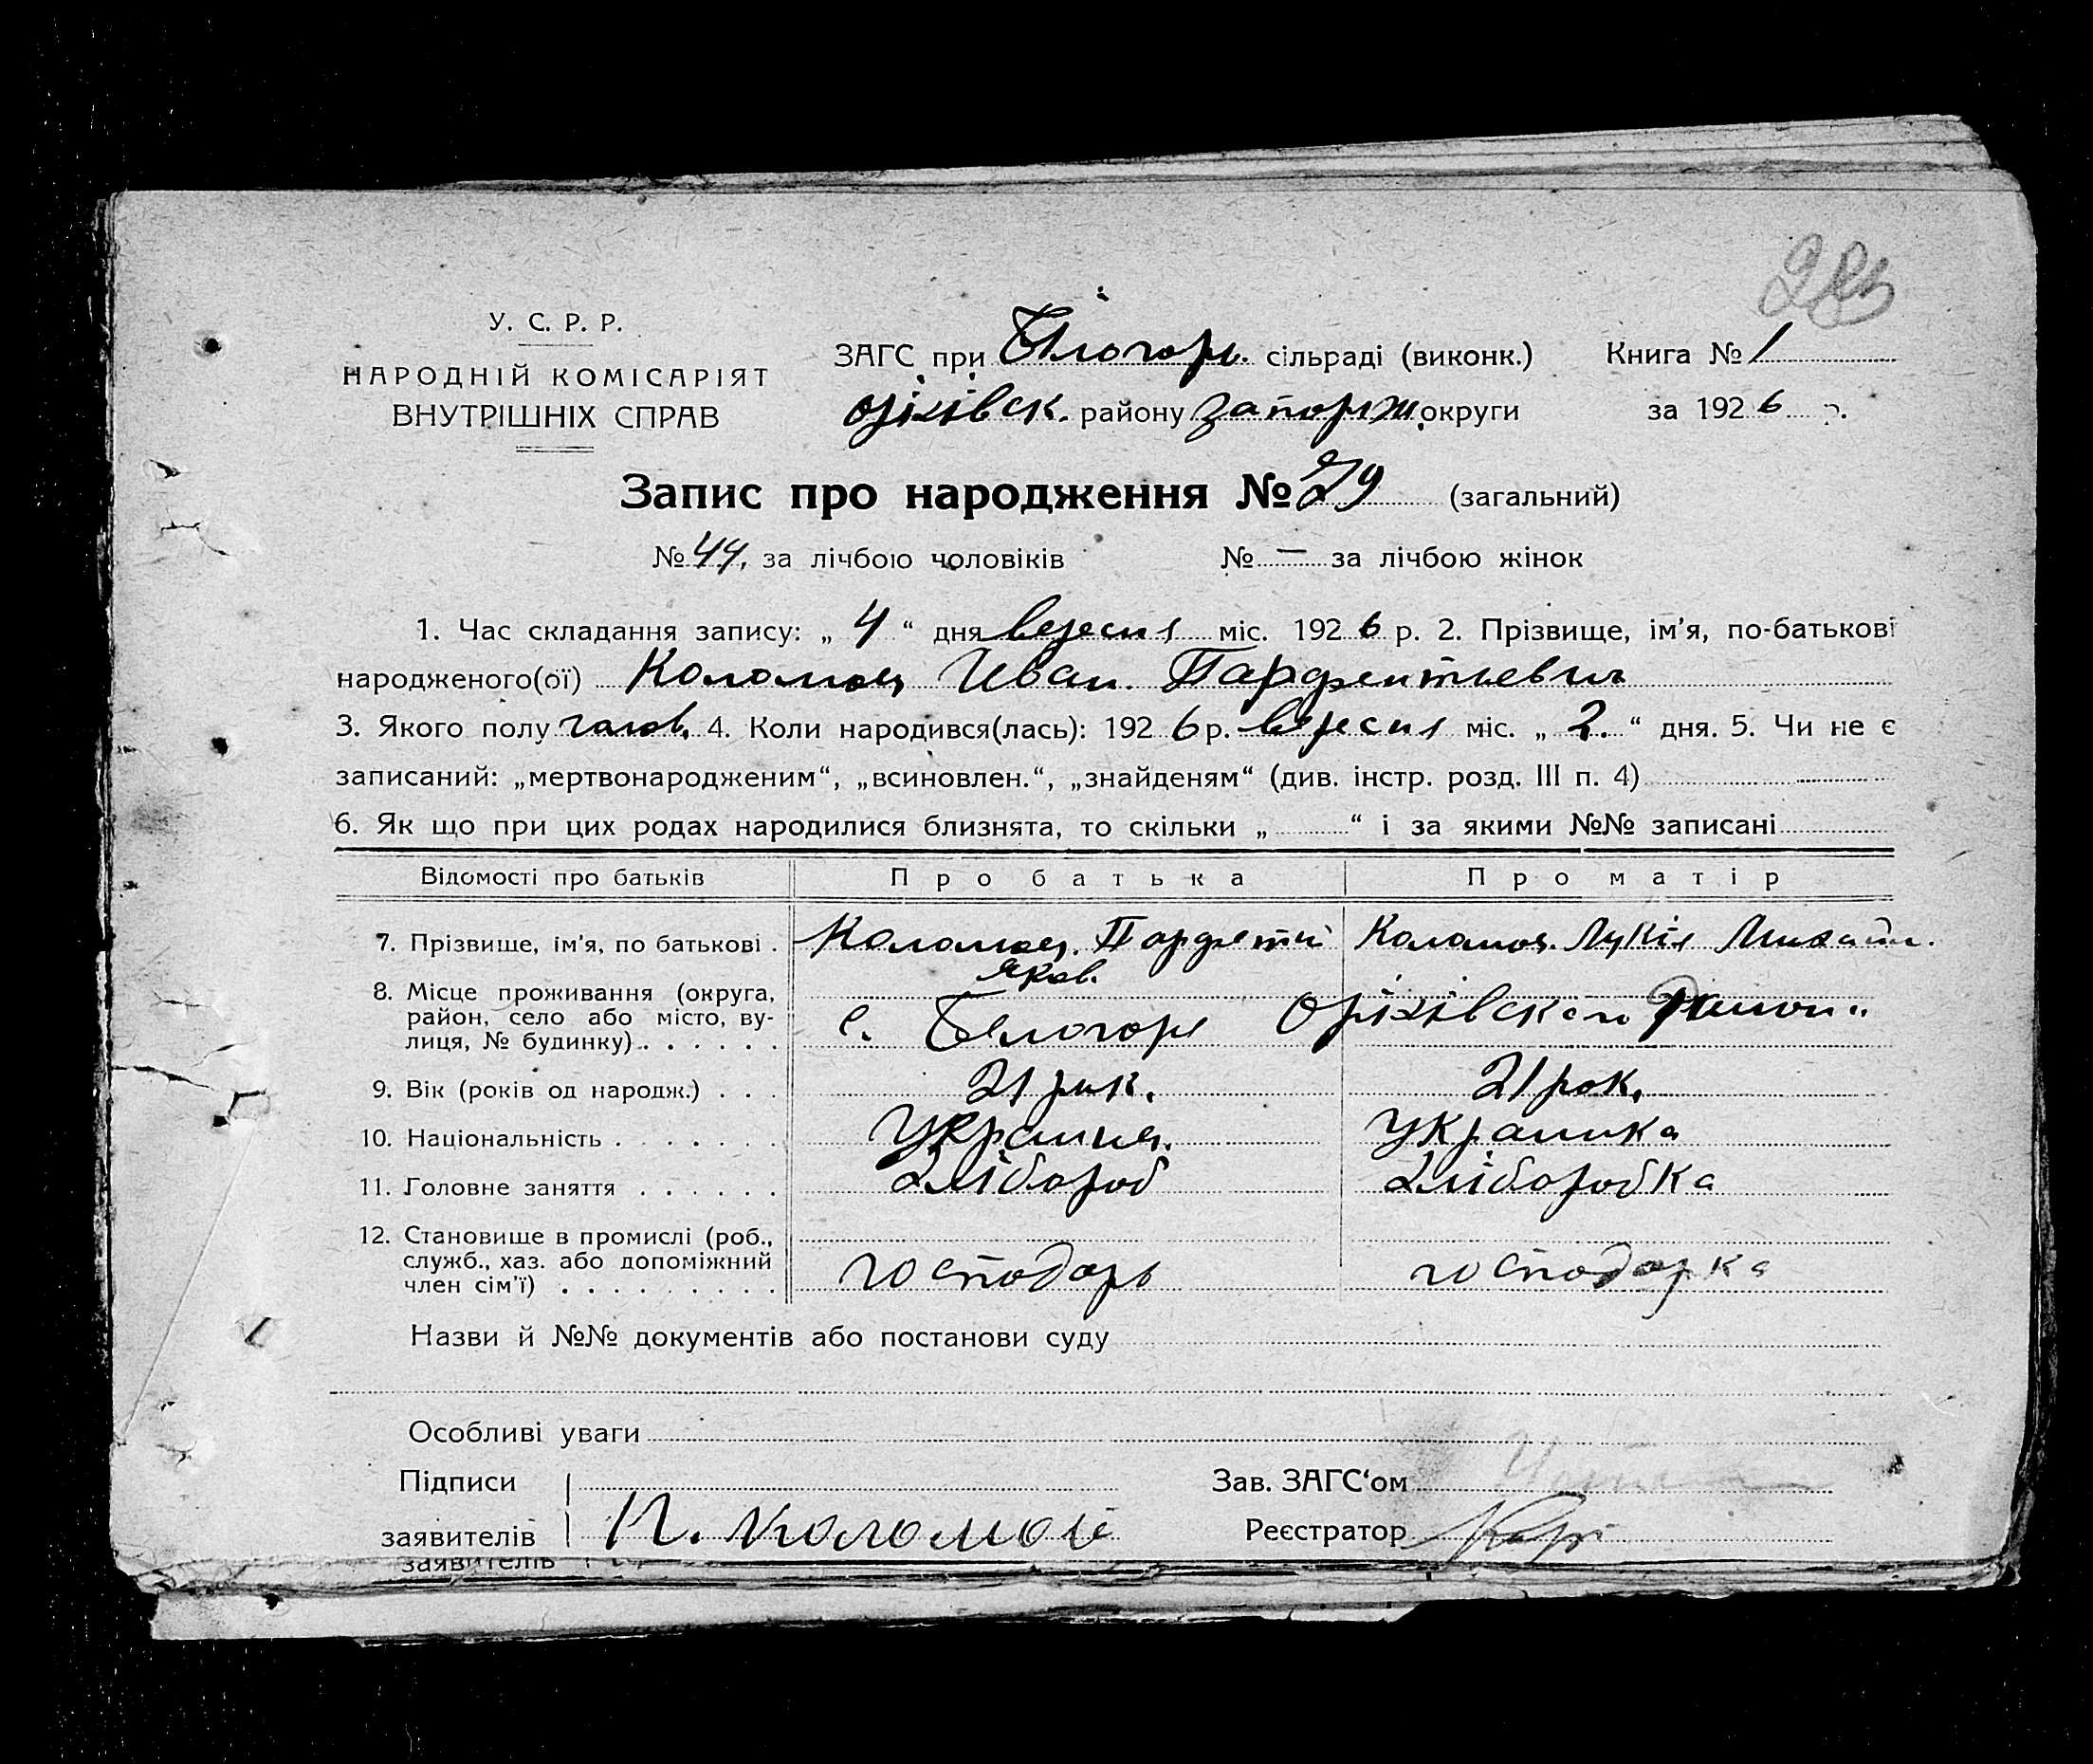 У. С. Р. Р.
НАРОДНІЙ КОМІСАРІЯТ
ВНУТРІШНІХ СПРАВ
ЗАГС при Білогор. сільраді (виконк.) Книга № 1
Оріхівск. району Запорж. округи за 1926 р.
Запис про народження № 79 (загальний)
№ 44, за лічбою чоловіків № — за лічбою жінок
1. Час складання запису: „ 4 “ дня вересня міс. 1926 р. 2. Прізвище, ім’я, по-батькові
народженого(ої) Коломоец Иван Парфентьевич
3. Якого полу чолов. 4. Коли народився(лась): 1926 р. вересня міс. „ 2. “ дня. 5. Чи не є
записаний: „мертвонародженим“, „всиновлен.“, „знайденям“ (див. інстр. розд. III п. 4)
6. Як що при цих родах народилися близнята, то скільки „ “ і за якими №№ записані
Відомості про батьків Про батька Про матір
7. Прізвище, ім’я, по батькові . Коломоец. Парфетий Яков. Коломоц. Лукія Михайл.
8. Місце проживання (округа,
район, село або місто, ву-
лиця, № будинку) . . . . . . с. Белогоре Оріхівского району
9. Вік (років од народж.) . . . 21 рик. 21 рок.
10. Національність . . . . . . . Украинец. Украинка
11. Головне заняття . . . . . . Хлібороб Хлібородка
12. Становище в промислі (роб.,
служб., хаз. або допоміжний
член сім’ї) . . . . . . . . . господарь господарка
Назви й №№ документів або постанови суду
Особливі уваги
Підписи Зав. ЗАГС‘ом
заявителів П. Коломоіе Реєстратор
заявителів